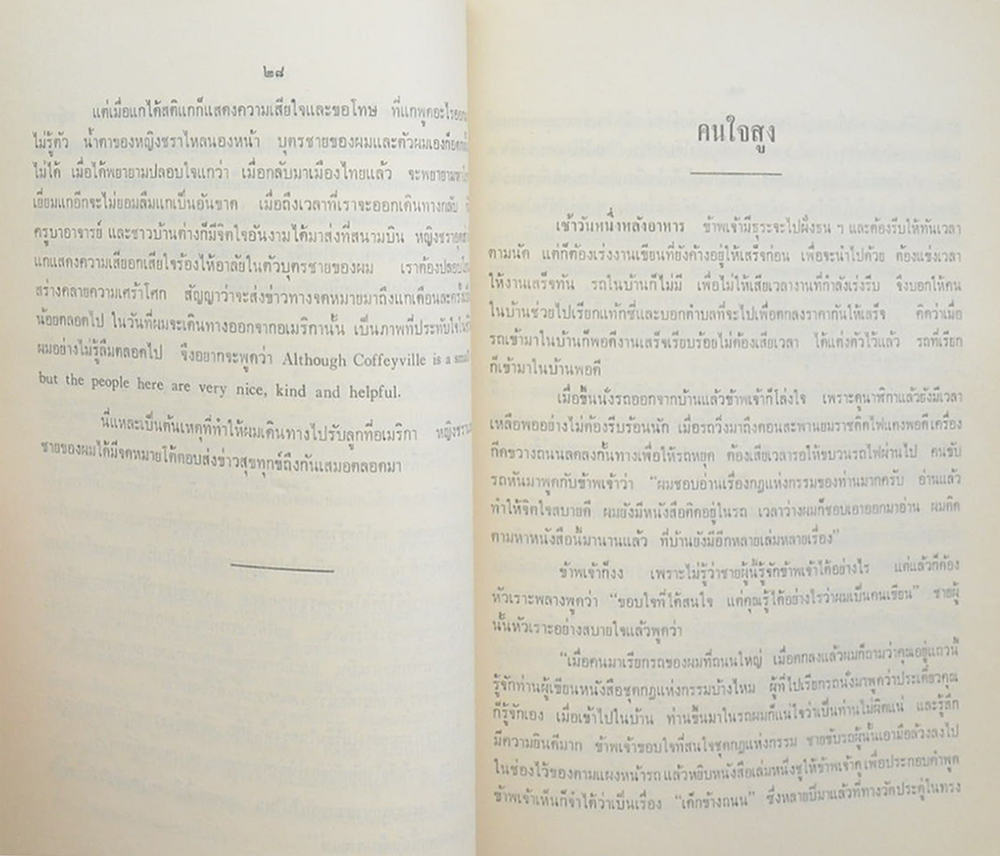 ๒๘
แต่เมื่อแกได้สติแกก็แสดงความเสียใจและขอโทษ ที่แกพูดอะไร
ไม่รู้ตัว น้ำตาของหญิงชราไหลนองหน้า บุตรชายของผมและตัวผมเองก็
ไม่ได้ เมื่อได้พยายามปลอบใจแกว่า เมื่อกลับมาเมืองไทยแล้ว จะพยายาม
เยี่ยมแกอีกจะไม่ยอมลืมแกเป็นอันขาด เมื่อถึงเวลาที่เราจะออกเดินทางกลับ
ครูบาอาจารย์ และชาวบ้านต่างก็มีจิตใจอันงามได้มาส่งที่สนามบิน หญิงชรา
แกแสดงความเสียอกเสียใจร้องไห้อาลัยในตัวบุตรชายของผม เราต้องปลอบ
สร่างคลายความเศร้าโศก สัญญาว่าจะส่งข่าวทางจดหมายมาถึงแกเดือนละครั้ง
น้อยตลอดไป ในวันที่ผมจะเดินทางออกจากอเมริกานั้น เป็นภาพที่ประทับใจ
ผมอย่างไม่รู้ลืมตลอดไป จึงอยากจะพูดว่า Although Coffeyville is a small
but the people here are very nice, kind and helpful.
นี่แหละเป็นต้นเหตุที่ทำให้ผมเดินทางไปรับลูกที่อเมริกา
ชายของผมได้มีจดหมายโต้ตอบส่งข่าวสุขทุกข์ถึงกันเสมอตลอดมา
คนใจสูง
เช้าวันหนึ่งหลังอาหาร ข้าพเจ้ามีธุระจะไปฝั่งธน ฯ และต้องรีบให้ทันเวลา
ตามนัด แต่ก็ต้องเร่งงานเขียนที่ยังค้างอยู่ให้เสร็จก่อน เพื่อจะนำไปด้วย ต้องแข่งเวลา
ให้งานเสร็จทัน รถในบ้านก็ไม่มี เพื่อไม่ให้เสียเวลางานที่กำลังเร่งรีบ จึงบอกให้คน
ในบ้านช่วยไปเรียกแท๊กซี่และบอกตำบลที่จะไปเพื่อตกลงราคากันให้เสร็จ คิดว่าเมื่อ
รถเข้ามาในบ้านก็พอดีงานเสร็จเรียบร้อยไม่ต้องเสียเวลา ได้แต่งตัวไว้แล้ว รถที่เรียก
ก็เข้ามาในบ้านพอดี
เมื่อขึ้นนั่งรถออกจากบ้านแล้วข้าพเจ้าก็โล่งใจ เพราะดูนาฬิกาแล้วยังมีเวลา
เหลือพออย่างไม่ต้องรีบร้อนนัก เมื่อรถวิ่งมาถึงตอนสะพานยมราชติดไฟแดงพอดีเครื่อง
กีดขวางถนนลดลงกั้นทางเพื่อให้รถหยุด ต้องเสียเวลารอให้ขบวนรถไฟผ่านไป คนขับ
รถหันมาพูดกับข้าพเจ้าว่า “ผมชอบอ่านเรื่องกฎแห่งกรรมของท่านมากครับ อ่านแล้ว
ทำให้จิตใจสบายดี ผมยังมีหนังสือติดอยู่ในรถ เวลาว่างผมก็ชอบเอาออกมาอ่าน ผมติด
ตามหาหนังสือนี้มานานแล้ว ที่บ้านยังมีอีกหลายเล่มหลายเรื่อง”
ข้าพเจ้าก็งง เพราะไม่รู้ว่าชายผู้นี้รู้จักข้าพเจ้าได้อย่างไร แต่แล้วก็ต้อง
หัวเราะพลางพูดว่า “ขอบใจที่ได้สนใจ แต่คุณรู้ได้อย่างไรว่าผมเป็นคนเขียน” ชายผู้
นั้นหัวเราะอย่างสบายใจแล้วพูดว่า
“เมื่อคนมาเรียกรถของผมที่ถนนใหญ่ เมื่อตกลงแล้วผมก็ถามว่าคุณอยู่แถวนี้
รู้จักท่านผู้เขียนหนังสือชุดกฎแห่งกรรมบ้างไหม ผู้ที่ไปเรียกรถนั่งมาพูดว่าประเดี๋ยวคุณ
ก็รู้จักเอง เมื่อเข้าไปในบ้าน ท่านขึ้นมาในรถผมก็แน่ใจว่าเป็นท่านไม่ผิดแน่ และรู้สึก
มีความยินดีมาก ข้าพเจ้าขอบใจที่สนใจชุดกฎแห่งกรรม ชายขับรถผู้นั้นเอามือล้วงลงไป
ในช่องไว้ของตามแผงหน้ารถ แล้วหยิบหนังสือเล่มหนึ่งชูให้ข้าพเจ้าดู เพื่อประกอบคำพูด
ข้าพเจ้าเห็นก็จำได้ว่าเป็นเรื่อง “เด็กข้างถนน” ซึ่งหลายปีมาแล้วที่ทางวัดประดู่ในทรง